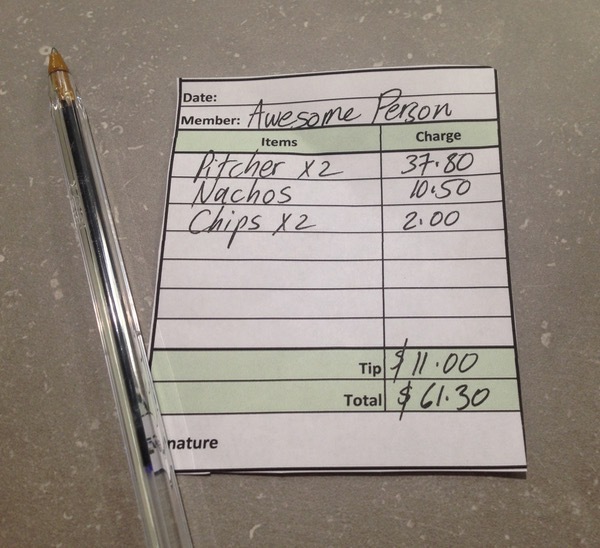 Date:
Member: Awesome Person
Items Charge
Pitcher x2 37.80
Nachos 10.50
Chips x2 2.00
Tip $11.00
Total $61.30
nature